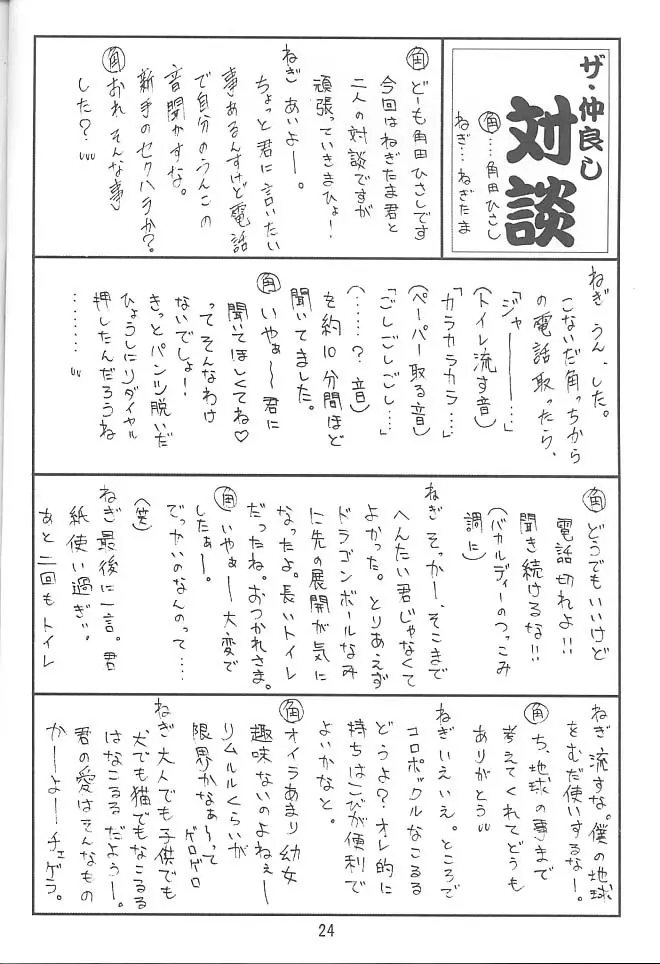 ザ・仲良し
対談
角……角田ひさし
ねぎ…ねぎたま
角 どーも角田ひさしです
今回はねぎたま君と
二人の対談ですが
頑張っていきまひょ!
ねぎ あいよー。
ちょっと君に言いたい
事あるんすけど電話
で自分のうんこの
音聞かすな。
新手のセクハラか?
角 おれ そんな事
した?
ねぎ うん、した。
こないだ角っちから
の電話取ったら、
「ジャー――…」
(トイレ流す音)
「カラカラカラ…」
(ペーパー取る音)
「ごしごしごし…」
(……?音)
を約10分間ほど
聞いてました。
角 いやぁ〜君に
聞いてほしくてね♡
ってそんなわけ
ないでしょ!
きっとパンツ脱いだ
ひょうしにリダイヤル
押したんだろうね
………
角 どうでもいいけど
電話切れよ!!
聞き続けるな!!
(バカルディーのつっこみ
調に)
ねぎ そっかー、そこまで
へんたい君じゃなくて
よかった。とりあえず
ドラゴンボールなみ
に先の展開が気に
なったよ。長いトイレ
だったね。おつかれさま。
角 いやぁー大変で
したぁー。
でっかいのなんのって……
(笑)
ねぎ 最後に一言。君
紙使い過ぎ。
あと二回もトイレ
ねぎ 流すな。僕の地球
をむだ使いするなー。
角 ち、地球の事まで
考えてくれてどうも
ありがとう
ねぎ いえいえ。ところで
コロポックルなこるる
どうよ?オレ的に
持ちはこびが便利で
よいかなと。
角 オイラあまり幼女
趣味ないのよねぇー
リムルルくらいが
限界かなぁ〜って
ゲロゲロ
ねぎ 大人でも子供でも
犬でも猫でもなこるる
はなこるるだよぅー。
君の愛はそんなもの
かーよーチェゲラ。
24